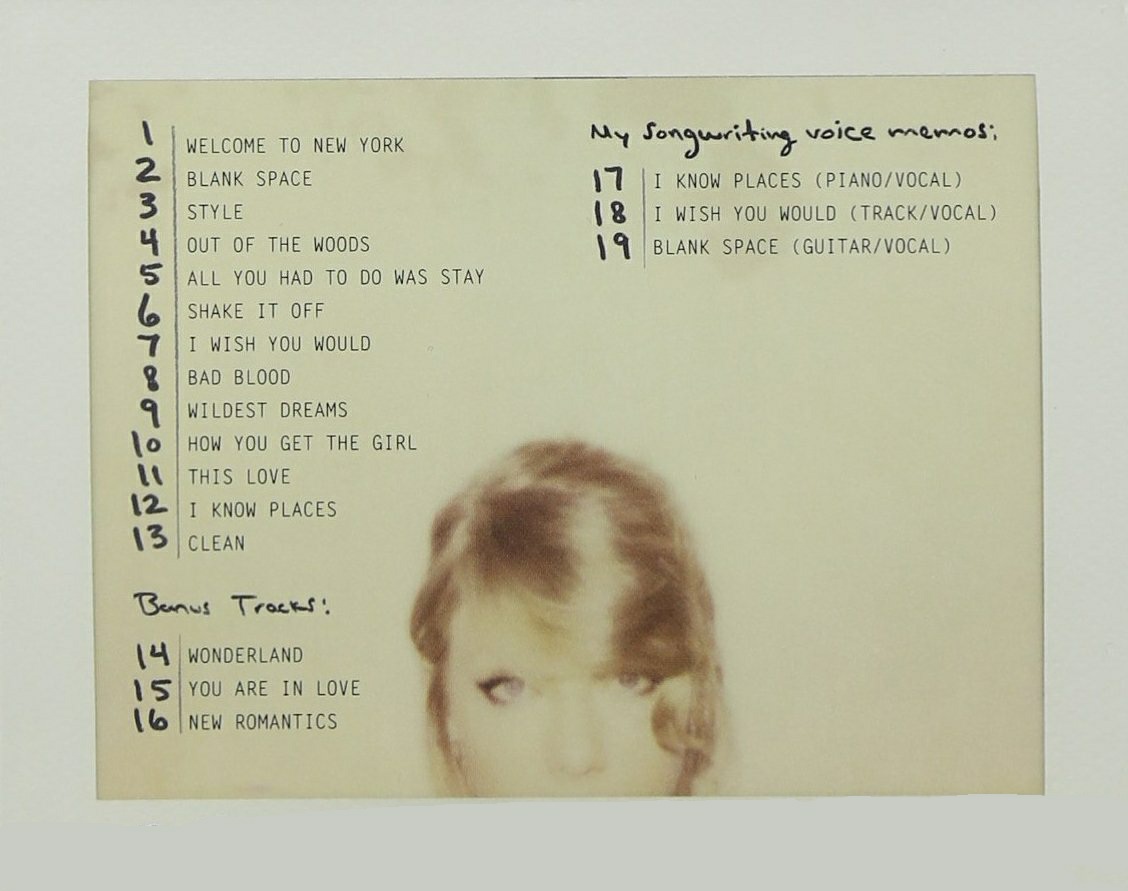 1 WELCOME TO NEW YORK
2 BLANK SPACE
3 STYLE
4 OUT OF THE WOODS
5 ALL YOU HAD TO DO WAS STAY
6 SHAKE IT OFF
7 I WISH YOU WOULD
8 BAD BLOOD
9 WILDEST DREAMS
10 HOW YOU GET THE GIRL
11 THIS LOVE
12 I KNOW PLACES
13 CLEAN
Bonus Tracks:
14 WONDERLAND
15 YOU ARE IN LOVE
16 NEW ROMANTICS
My Songwriting voice memos:
17 I KNOW PLACES (PIANO/VOCAL)
18 I WISH YOU WOULD (TRACK/VOCAL)
19 BLANK SPACE (GUITAR/VOCAL)